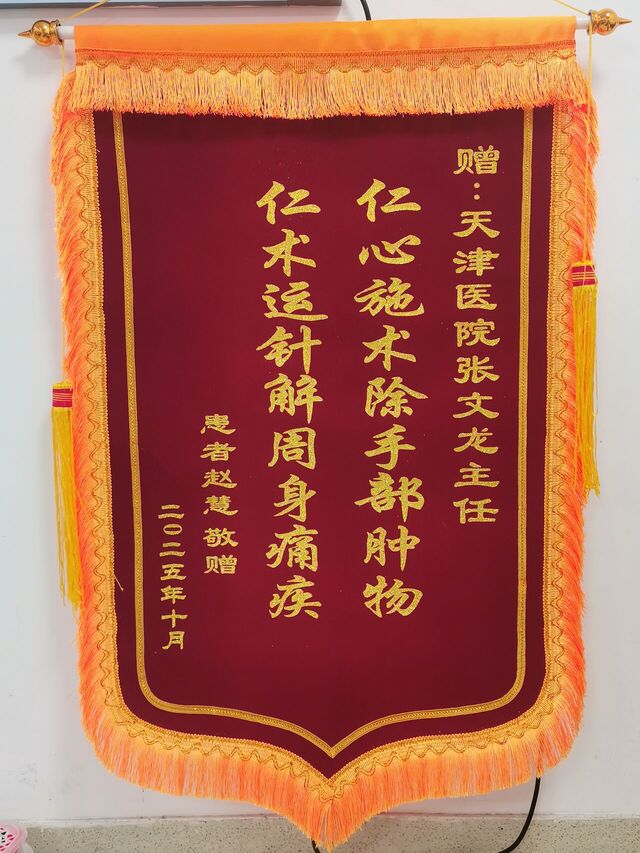 赠：天津医院张文龙主任
仁心施术除手部肿物
仁术运针解周身痛疾
患者赵慧敬赠
二〇二五年十月